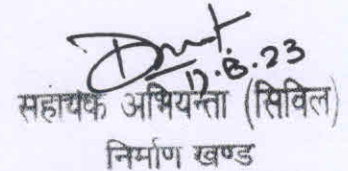 17.8.23
सहायक अभियन्ता (सिविल)
निर्माण खण्ड